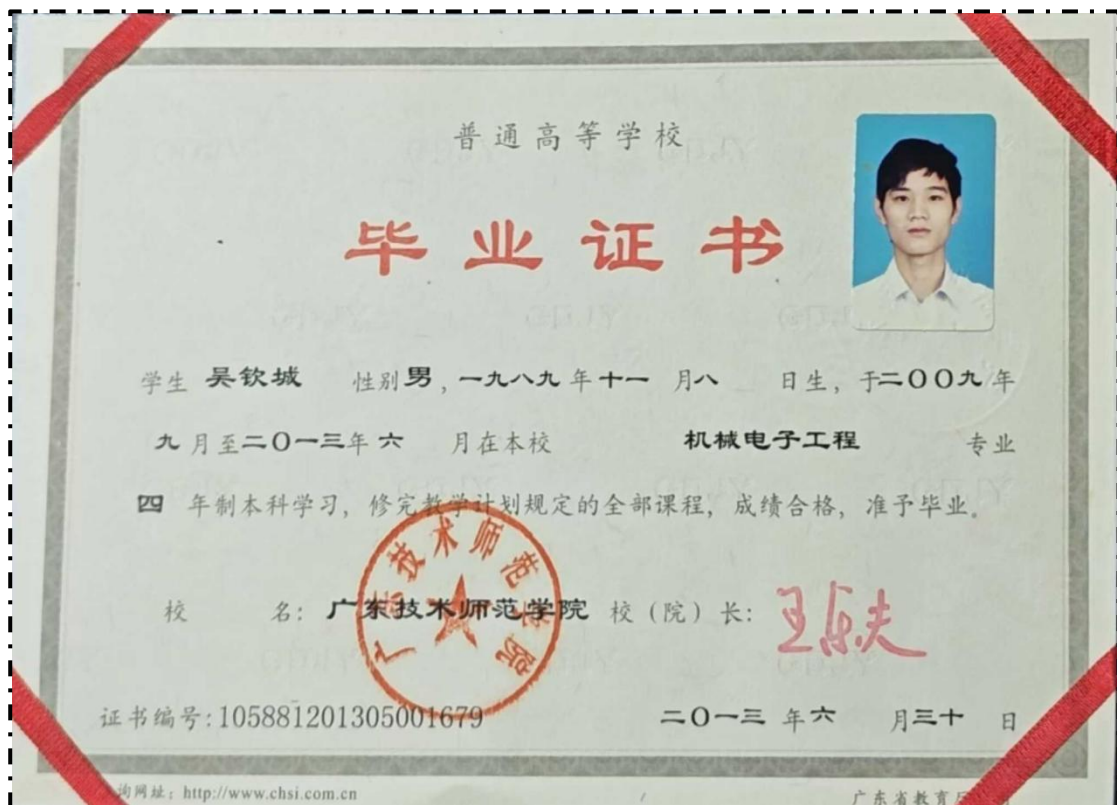 普通高等学校
毕业证书
学生 吴钦城 性别 男，一九八九 年 十一 月 八 日生，于二〇〇九 年
九 月至二〇一三年 六 月在本校 机械电子工程 专业
四 年制本科学习，修完教学计划规定的全部课程，成绩合格，准予毕业。
校 名：广东技术师范学院 校（院）长：王乐夫
广东技术师范学院
证书编号：105881201305001679 二〇一三 年 六 月三十 日
询网址：http://www.chsi.com.cn 广东省教育厅